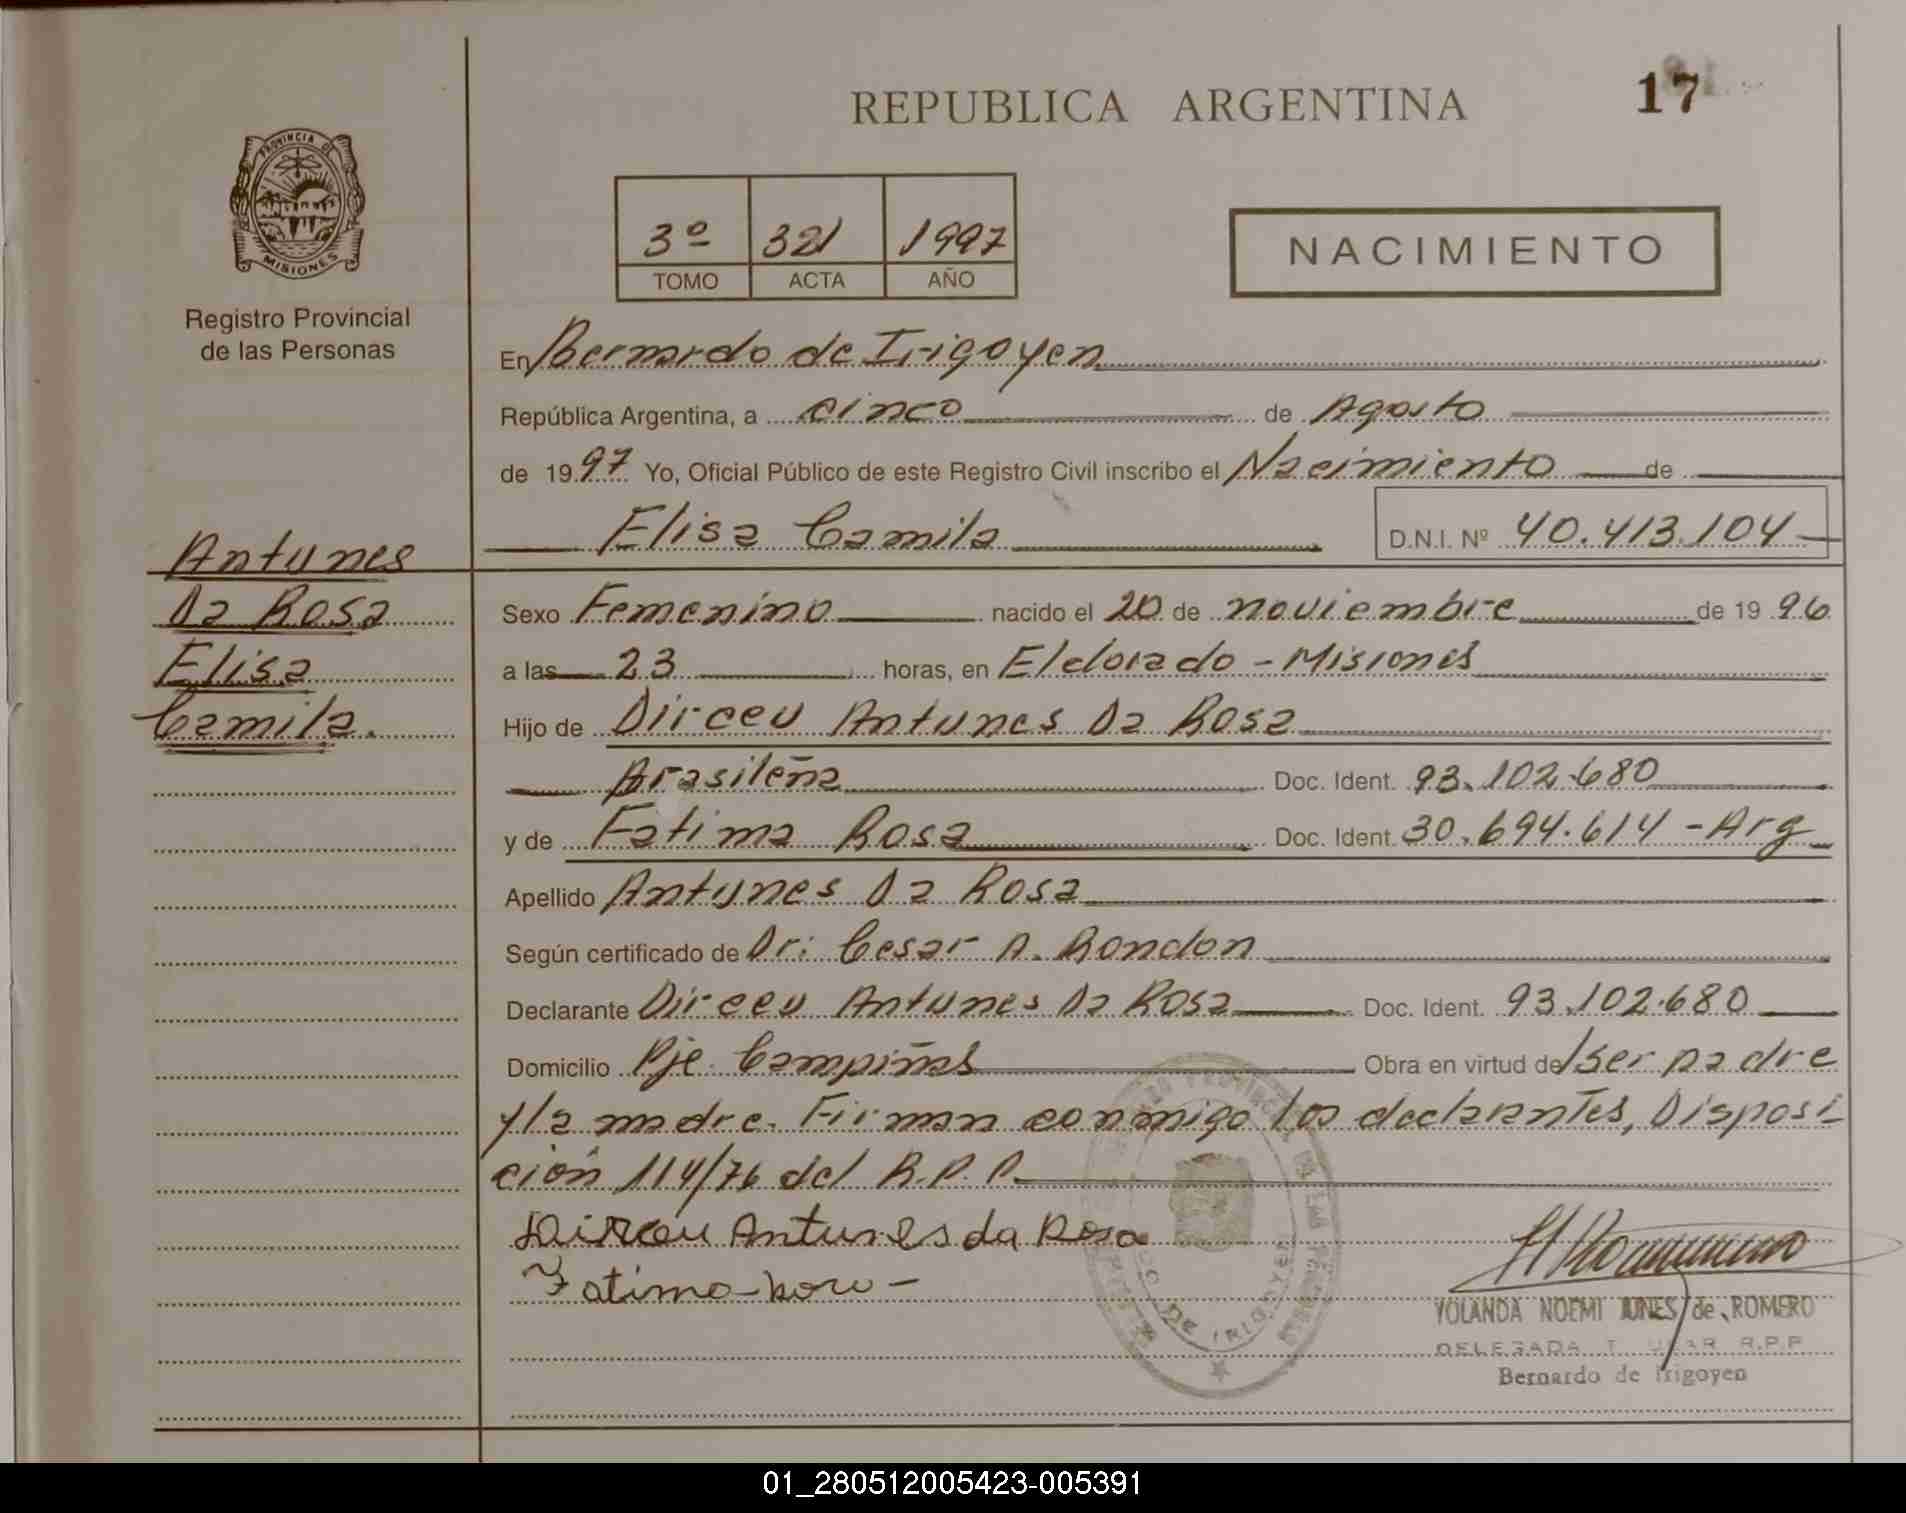 REPUBLICA ARGENTINA
17
PROVINCIA DE
MISIONES
Registro Provincial
de las Personas
3º 321 1997
TOMO ACTA AÑO
NACIMIENTO
En Bernardo de Irigoyen
República Argentina, a cinco de Agosto
de 1997 Yo, Oficial Público de este Registro Civil inscribo el Nacimiento de
Elisa Camila D.N.I. Nº 40.413.104
Antunes
Da Rosa
Elisa
Camila.
Sexo Femenino nacido el 20 de noviembre de 1996
a las 23 horas, en Eldorado - Misiones
Hijo de Dirceu Antunes Da Rosa
Brasileña Doc. Ident. 93.102.680
y de Fatima Rosa Doc. Ident. 30.694.614 - Arg
Apellido Antunes Da Rosa
Según certificado de Dr: Cesar A. Rondon
Declarante Dirceu Antunes Da Rosa Doc. Ident. 93.102.680
Domicilio Pje. Campiñas Obra en virtud de ser padre
y la madre. Firman conmigo los declarantes, Disposi
ción 114/76 del R.P.P.
Dirceu Antunes da Rosa
Fatima
YOLANDA NOEMI de ROMERO
DELEGADA R.P.P
Bernardo de Irigoyen
DE IRIGOYEN
01_280512005423-005391